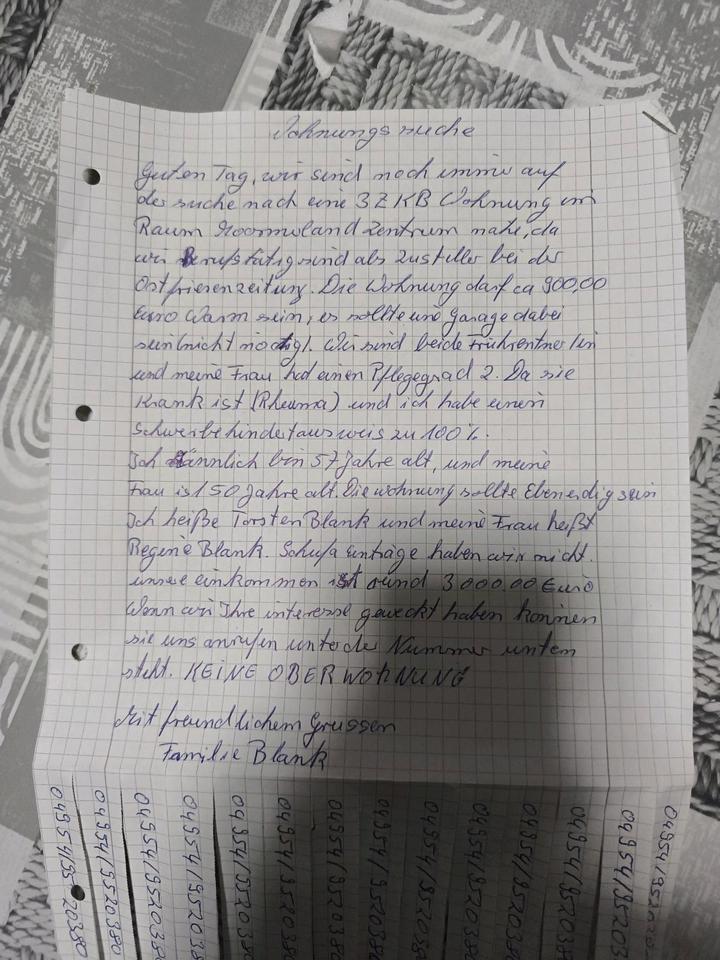 Wohnungssuche
Guten Tag, wir sind noch immer auf
der suche nach eine 3 Z KB Wohnung im
Raum Moormoland Zentrum nahe, da
wir Berufstätig sind als zusteller bei der
Ostfriesenzeitung. Die Wohnung darf ca 900,00
Euro Warm sein, es sollte eine Garage dabei
sein nicht nötig!. Wir sind beide Frührentner/in
und meine Frau hat einen Pflegegrad 2. Da sie
Krank ist (Rheuma) und ich habe einen
Schwerbehindertausweis zu 100%.
Ich männlich bin 57 Jahre alt, und meine
Frau ist 50 Jahre alt. Die wohnung sollte Ebenerdig sein
Ich heiße Torsten Blank und meine Frau heißt
Regine Blank. Schufa einträge haben wir nicht.
unsere einkommen ist rund 3000,00 Euro
Wenn wir Ihre interesse geweckt haben können
sie uns anrufen unter der Nummer unten
steht. KEINE OBERWOHNUNG
Mit freundlichem Grussen
Familie Blank
04954/9520380
04954/9520380
04954/9520380
04954/9520380
04954/9520380
04954/9520380
04954/9520380
04954/9520380
04954/9520380
04954/9520380
04954/9520380
04954/9520380
04954/95203
04954/9520380